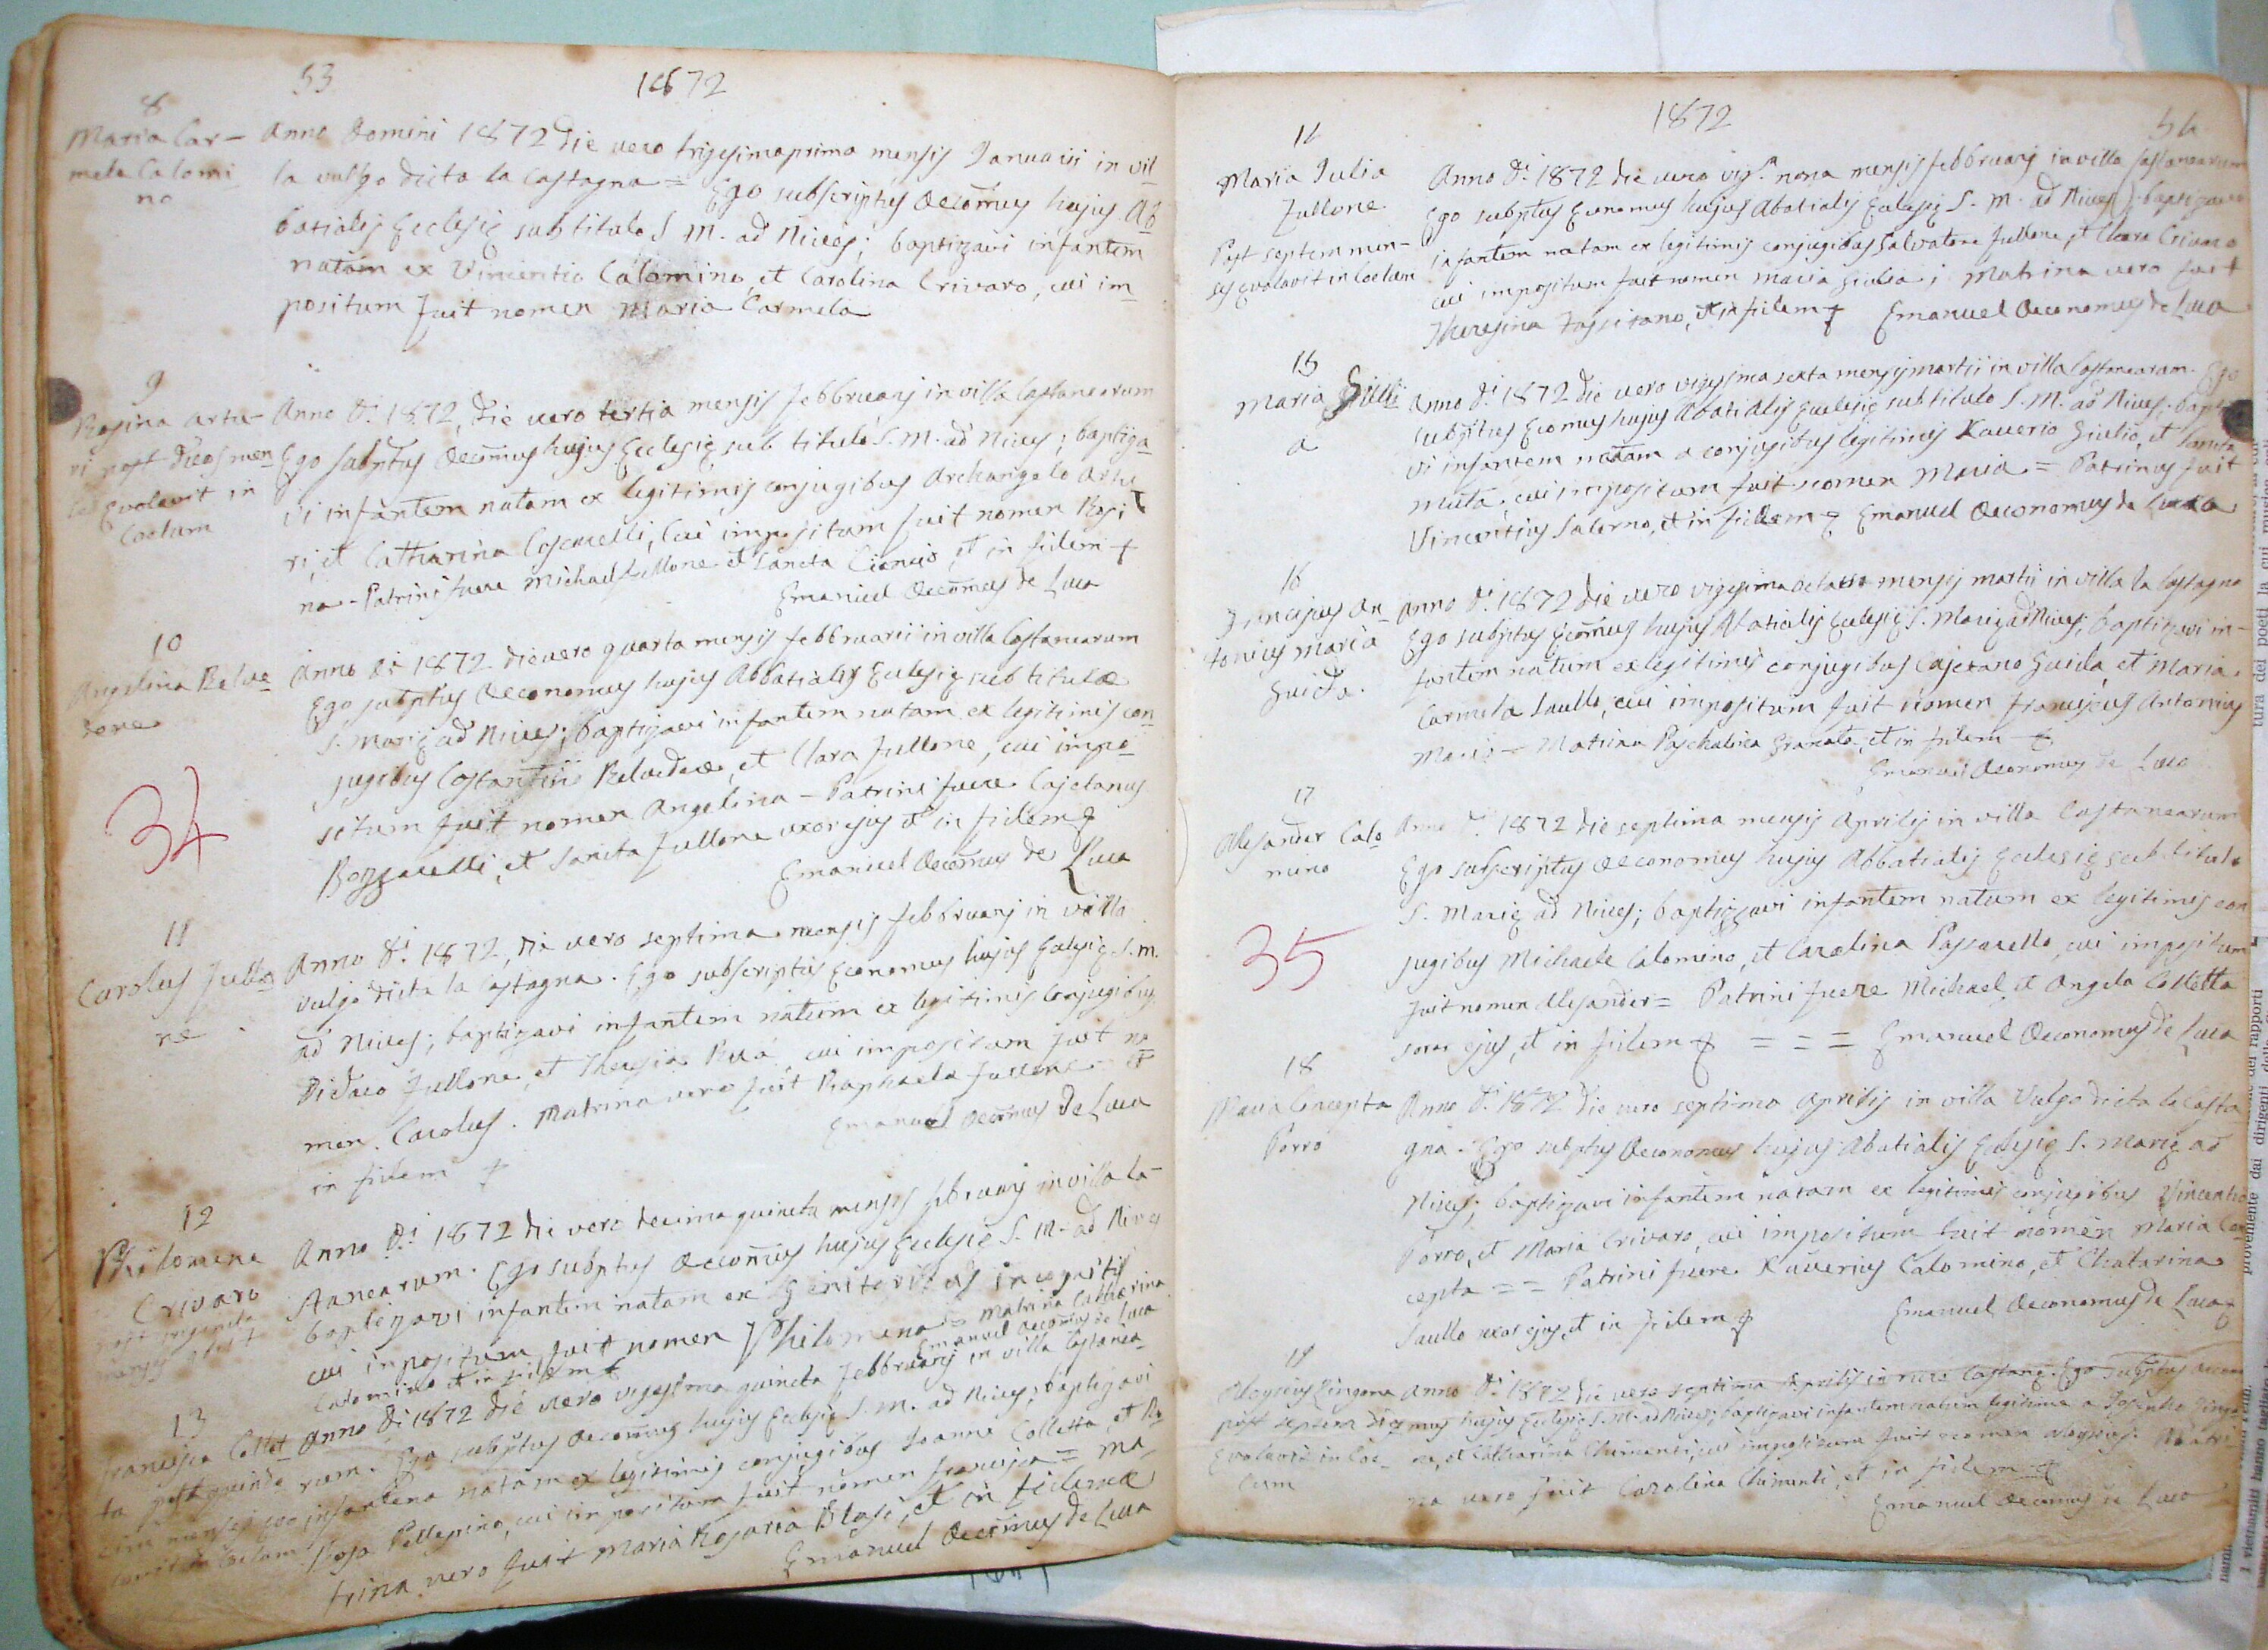 53
1872
8
Maria Car-
mela Calomi-
no
Anno Domini 1872 die vero trigesimaprima mensis Januarii in vil-
la vulgo dicta la Castagna = Ego subscriptus Oecomus hujus Ab
batialis Ecclesię sub titulo S. M. ad Nives; baptizavi infantem
natam ex Vincentio Calomino, et Carolina Crivaro, cui im-
positum fuit nomen Maria Carmela
9
Rosina Artu-
ri post duos men
Evolavit in
Coelum
Anno D.i 1872, die vero tertia mensis Febbruarj in villa Castanearum
Ego subntus Oecomus hujus Ecclesię sub titulo S. M. ad Nives; baptiza-
vi infantem natam ex legitimis conjugibus Archangelo Artu
ri, et Catharina, cui impositum fuit nomen Rosi
na - Patrini fuere Michael Fullone et Sancta, et in fidem +
Emanuel Oecomus de Luca
10
Angelina Belve
dere
Anno D.i 1872 die vero quarta mensis Febbruarii in villa Castanearum
Ego subptus Oeconomus hujus Abbatialis Eclesię sub titulo
S. Marię ad Nives; baptizavi infantem natam ex legitimis con-
jugibus Costantino Belvedere, et Clara Fullone, cui impo-
situm fuit nomen Angelina - Patrini fuere Cajetanus
Bozzarelli, et Sancta Fullone uxor ejus et in fidem +
Emanuel Oecomus de Luca
34
11
Carolus Fullo
ne
Anno D.i 1872, die vero septima mensis Febbruarj in villa
vulgo dicta la Castagna. Ego subscriptus Economus hujus Eclesię S. M.
ad Nives; baptizavi infantem natum ex legitimis conjugibus
Didaco Fullone, et Theresia, cui impositum fuit no-
men Carolus. Matrina vero fuit Raphaela Fullone et
in fidem +
Emanuel Oecomus de Luca
12
Philomena
Crivaro
post
Anno D.i 1872 die vero decima quincta mensis Februarj in villa Ca-
stanearum. Ego subptus Oeconius hujus Ecclesię S. M. ad Nives
baptizavi infantem natam ex Genitoribus incognitis
cui impositum fuit nomen Philomena = Matrina Catharina
Calomino et in fidem +
Emanuel Oecomus de Luca
13
Francisca Collet
ta post quinde
cim menses evo
lavit in Coelum
Anno D.i 1872 die vero vigesima quincta Febbruarj in villa Castanea-
rum. Ego subptus Oecomus hujus Eclesię S. M. ad Nives; baptizavi
infantem natam ex legitimis conjugibus Joanne Colletta, et Ro
Rosa Pellegrino, cui impositum fuit nomen Francisca = Ma
trina vero fuit Maria Rosaria Blasi, et in fidem
Emanuel Oecomus de Luca
1872
54
14
Maria Julia
Fullone
Post septem men-
ses Evolavit in Coelum
Anno D.i 1872 die vero vig.a nona mensis Febbruarj in villa Castanearum
Ego subptus Economus hujus Abatialis Eclesię S. M. ad Nives; baptizavi
infantem natam ex legitimis conjugibus Salvatore Fullone, et Clara Crivaro
cui impositum fuit nomen Maria Giulia; Matrina vero fuit
Theresina, et in fidem + Emanuel Oeconomus de Luca
15
Maria Giuli
a
Anno D.i 1872 die vero vigesima sexta mensis Martii in villa Castanearum. Ego
subptus Ecomus hujus Abatialis Eclesię sub titulo S. M. ad Nives; bapti
vi infantem natam a conjugibus legitimis Xaverio Giulio, et Sancta
cui impositum fuit nomen Maria = Patrinus fuit
Vincentius Salerno, et in fidem + Emanuel Oeconomus de Luca
16
Franciscus An
tonius Maria
Guida.
Anno D.i 1872 die vero vigesima octava mensis Martii in villa la Castagna
Ego subptus Ecomus hujus Abatialis Eclesię S. Marię ad Nives; baptizavi in-
fantem natum ex legitimis conjugibus Cajetano Guida, et Maria
Carmela Saullo, cui impositum fuit nomen Franciscus Antonius
Maria - Matrina Paschalina Granato, et in fidem +
Emanuel Oeconomus de Luca
17
Alesander Calo
mino
Anno D.i 1872 die septima mensis Aprilis in villa Castanearum
Ego subscriptus Oeconomus hujus Abbatialis Eclesię sub titulo
S. Marię ad Nives; baptizzavi infantem natum ex legitimis con
jugibus Michaele Calomino, et Carolina Passarello, cui impositum
fuit nomen Alesander = Patrini fuere Michael, et Angela Colletta
soror ejus, et in fidem + = = = Emanuel Oeconomus de Luca
35
18
Maria Concepta
Porro
Anno D.i 1872 die vero septima Aprilis in villa Vulgo dicta la Casta
gna - Ego subptus Oeconomus hujus Abatialis Eclesię S. Marię ad
Nives; baptizavi infantem natam ex legitimis conjugibus Vincentio
Porro, et Maria Crivaro, cui impositum fuit nomen Maria Con
cepta = = Patrini fuere Xaverius Calomino, et Chatarina
Saullo uxor ejus, et in fidem +
Emanuel Oeconomus de Luca +
19
Aloysius Zingona
post septem dies
Evolavit in Coe-
lum
Anno D.i 1872 die vero septima Aprilis in rure Castanę. Ego subptus Oecon
mus hujus Eclesię S. M. ad Nives; baptizavi infantem natum legitime a Josepho Zingo
na, et Catharina Chimenti, cui impositum fuit nomen Aloysius. Matri
na vero fuit Carolina Chimenti, et in fidem +
Emanuel Oecomus de Luca